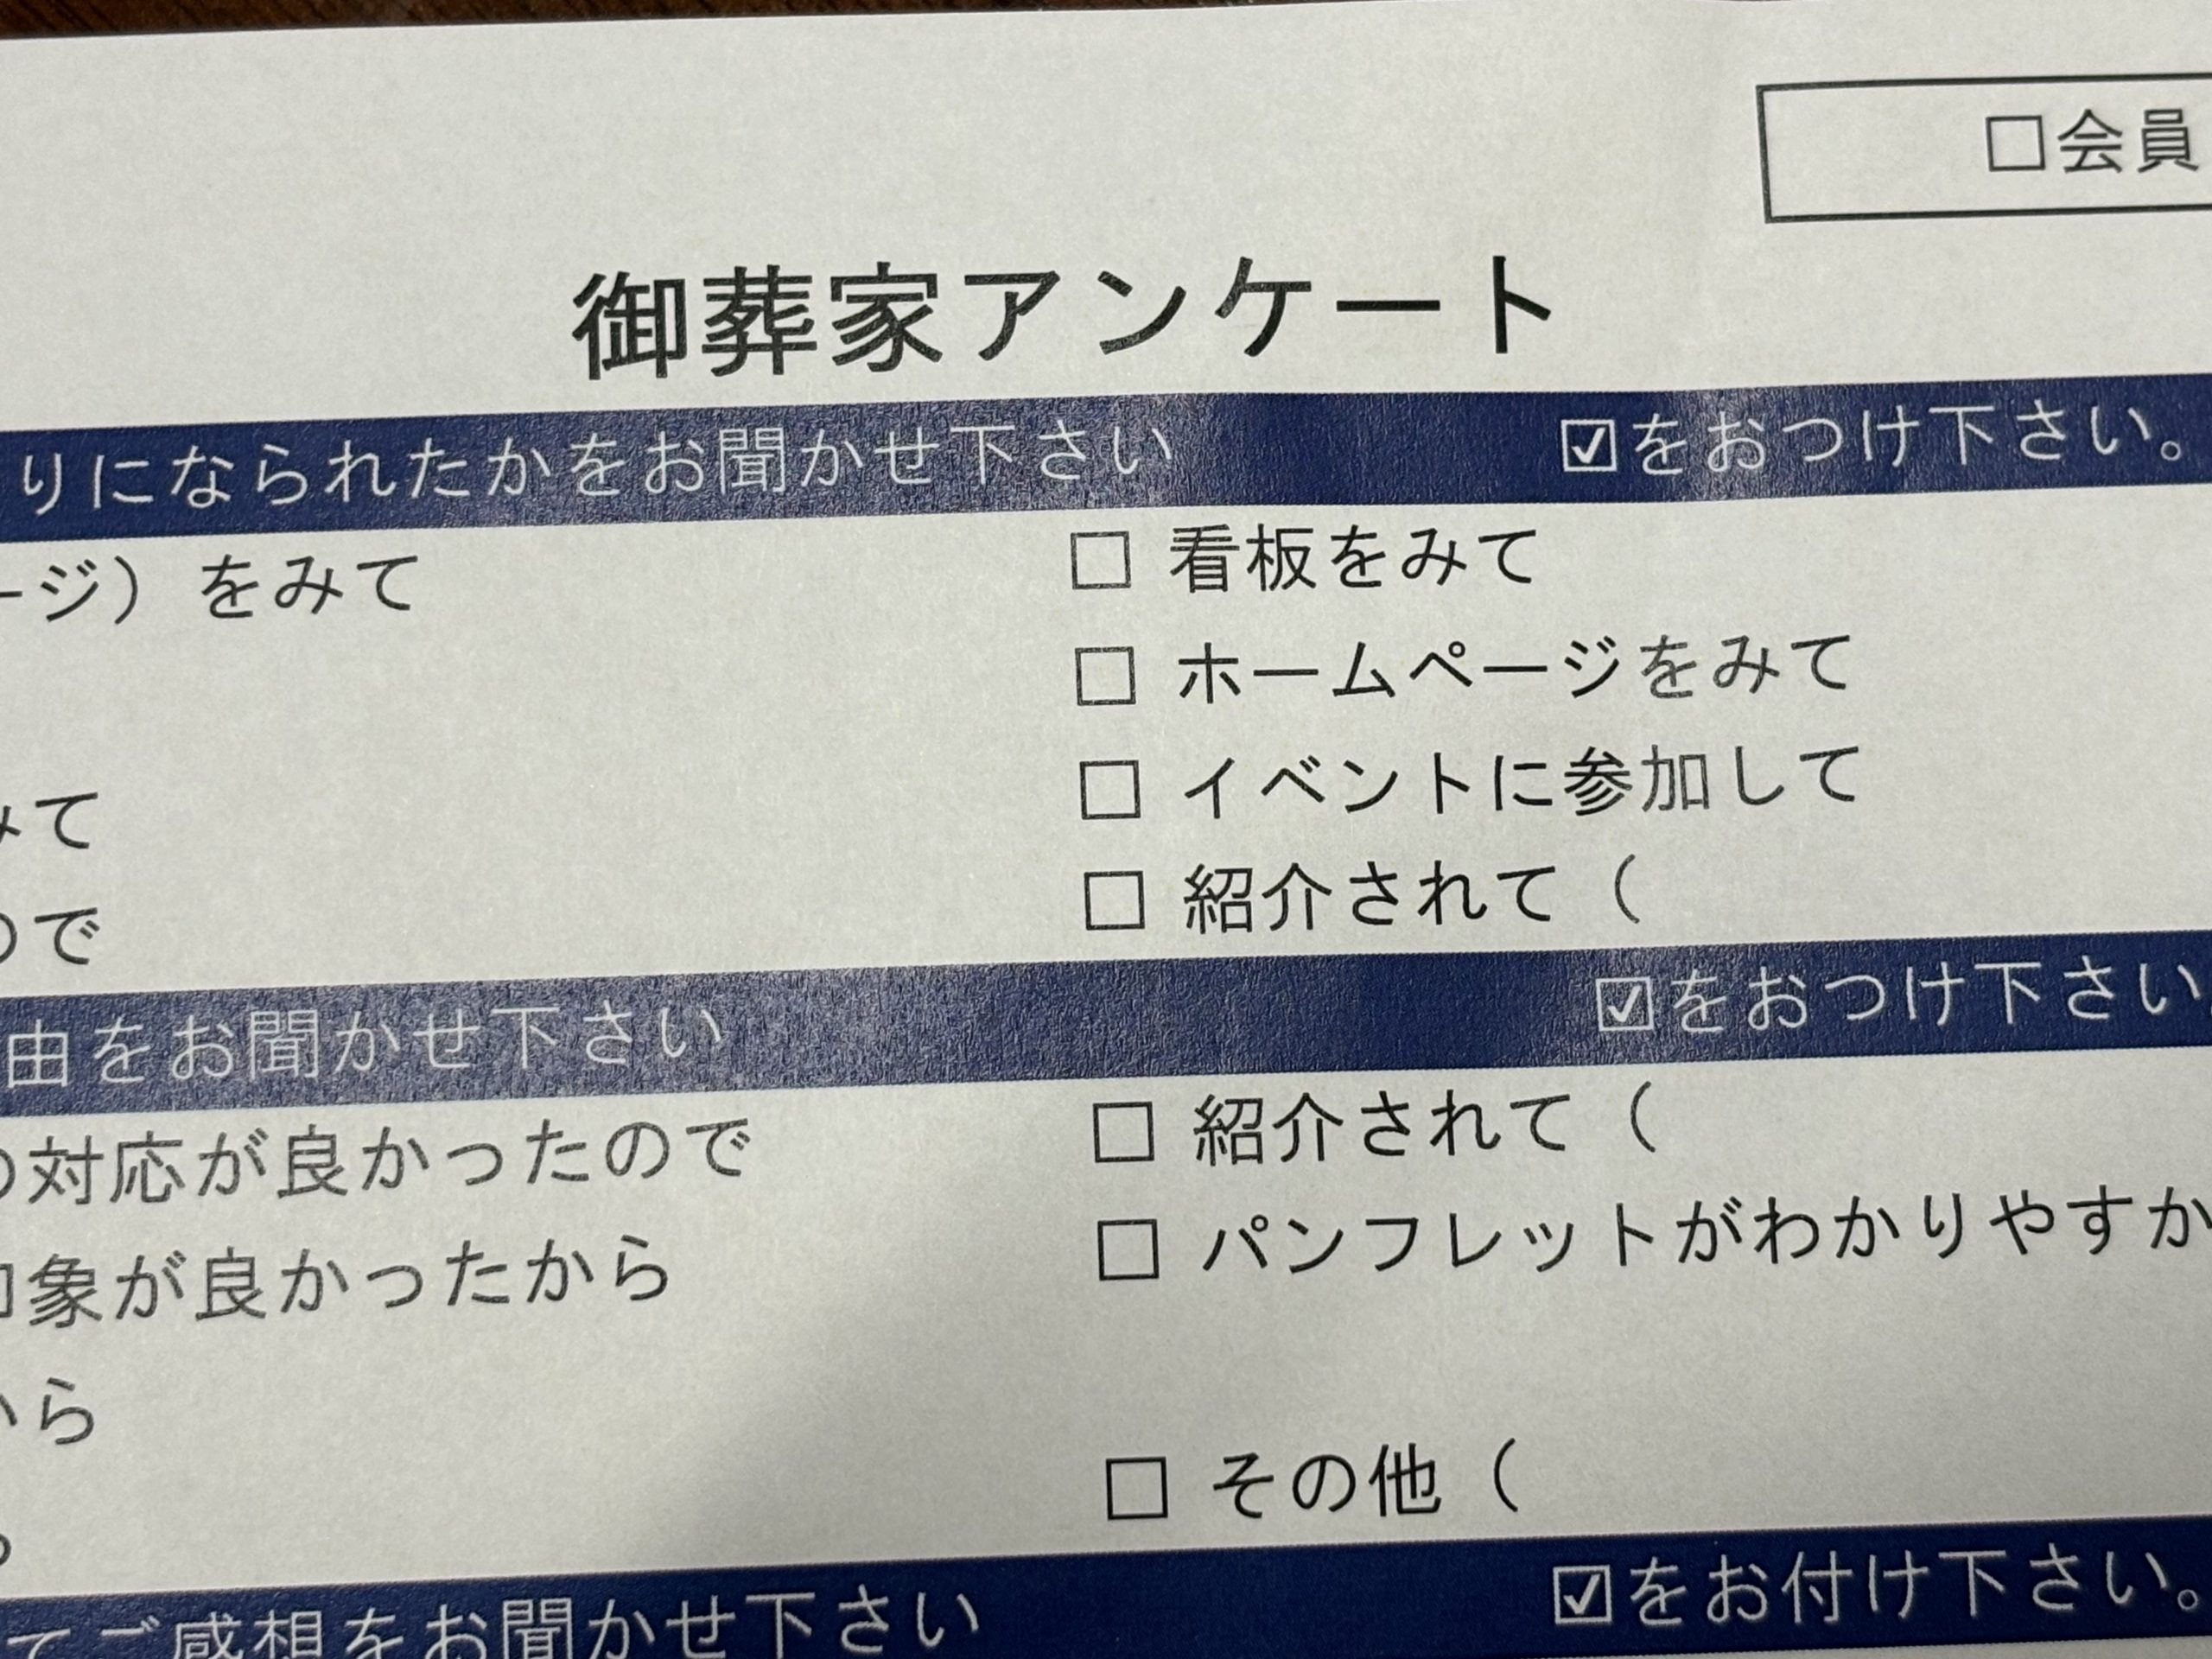 □会員
御葬家アンケート
りになられたかをお聞かせ下さい ☑をおつけ下さい。
ージ）をみて □ 看板をみて
□ ホームページをみて
みて □ イベントに参加して
ので □ 紹介されて（
由をお聞かせ下さい ☑をおつけ下さい
の対応が良かったので □ 紹介されて（
印象が良かったから □ パンフレットがわかりやすか
から
□ その他（
てご感想をお聞かせ下さい ☑をお付け下さい。